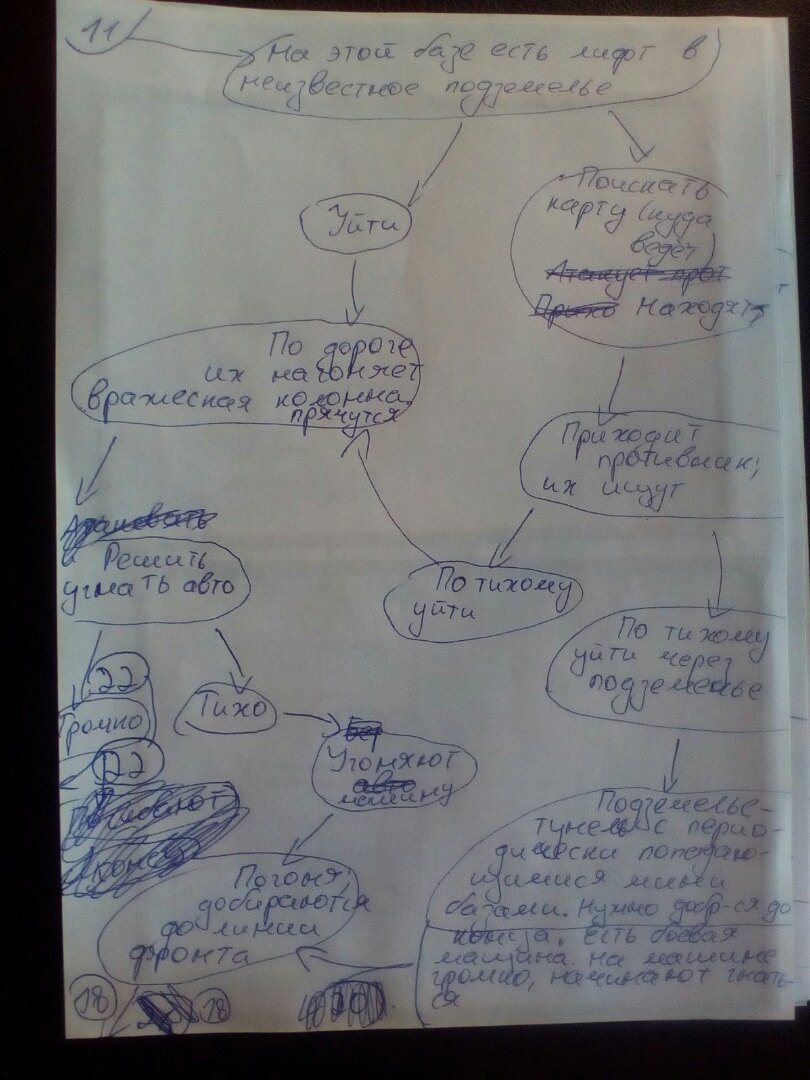 11
На этой базе есть лифт в
неизвестное подземелье
Уйти
Поискать
карту (куда
ведёт)
Атакует прот
находят
По дороге
их нагоняет
вражеская колонна,
прячутся
Приходит
противник;
их ищут
Атаковать
Решить
угнать авто
По тихому
уйти
По тихому
уйти через
подземелье
22
Громко
Тихо
22
Угоняют
авто
машину
Погоня;
добираются
до линии
фронта
Подземелье-
тунель с перио-
дически попадаю-
щимися мини
базами. Нужно добр-ся до
конца. Есть боевая
машина. На машине
громко, начинают гнать-
ся
18
18